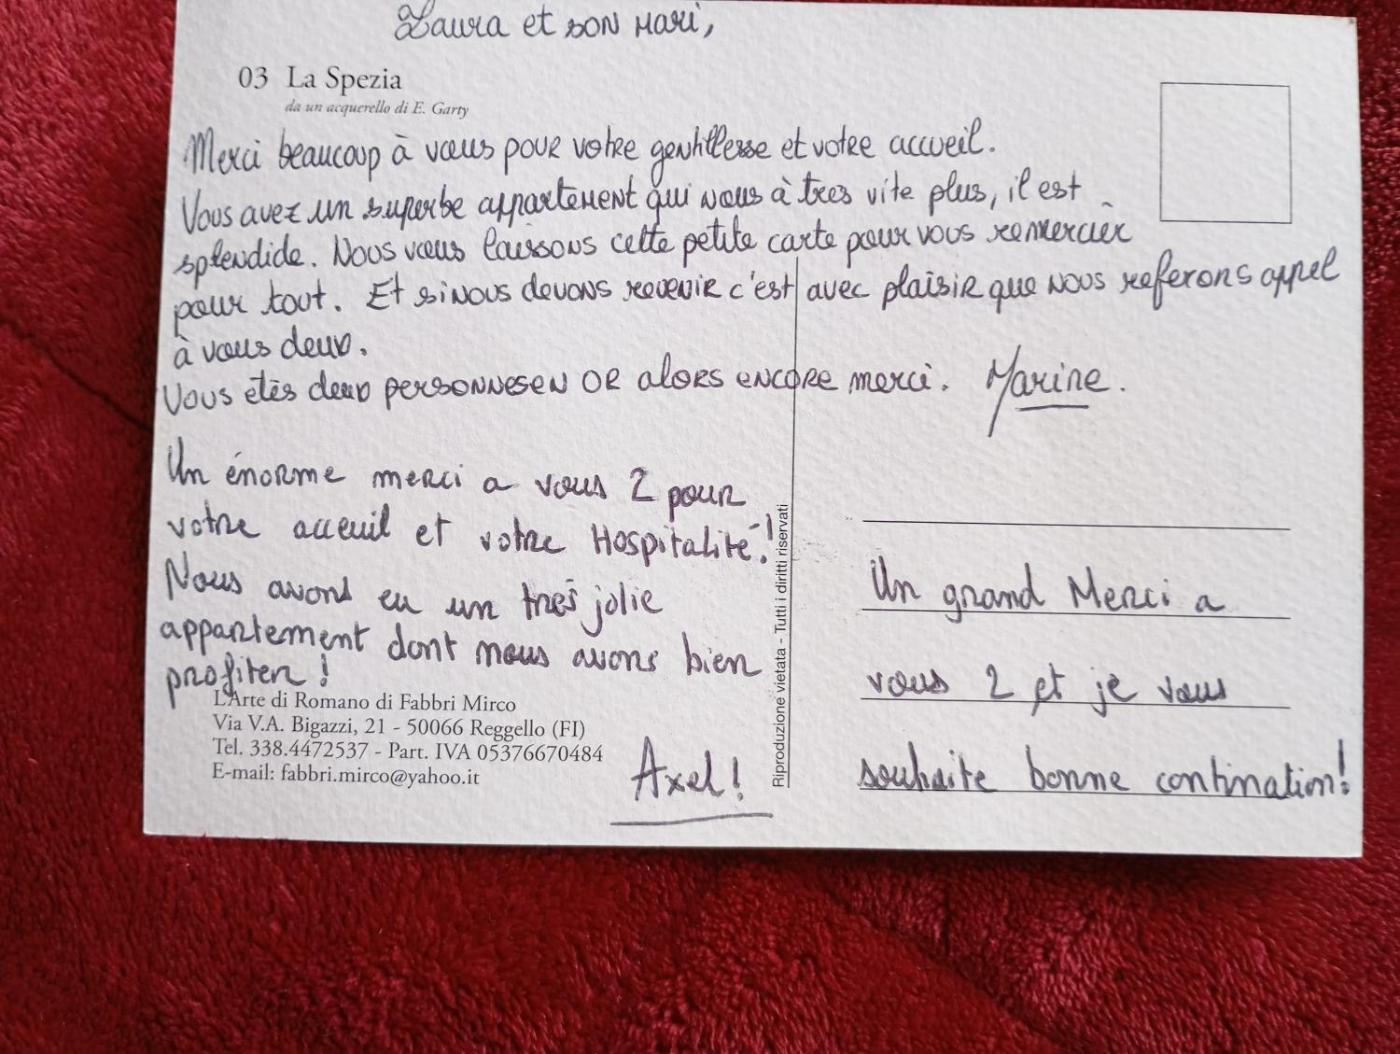 Laura et son mari,
03 La Spezia
da un acquerello di E. Garty
Merci beaucoup à vous pour votre gentillesse et votre accueil.
Vous avez un superbe appartement qui nous à très vite plus, il est
splendide. Nous vous laissons cette petite carte pour vous remercier
pour tout. Et si nous devons revenir c'est avec plaisir que nous referons appel
à vous deux.
Vous êtes deux personnes en OR alors encore merci. Marine.
Un énorme merci a vous 2 pour
votre acceuil et votre Hospitalité!
Nous avons eu un très jolie
appartement dont nous avons bien
profiter!
Axel!
L'Arte di Romano di Fabbri Mirco
Via V.A. Bigazzi, 21 - 50066 Reggello (FI)
Tel. 338.4472537 - Part. IVA 05376670484
E-mail: fabbri.mirco@yahoo.it
Riproduzione vietata - Tutti i diritti riservati
Un grand Merci a
vous 2 et je vous
souhaite bonne contination!